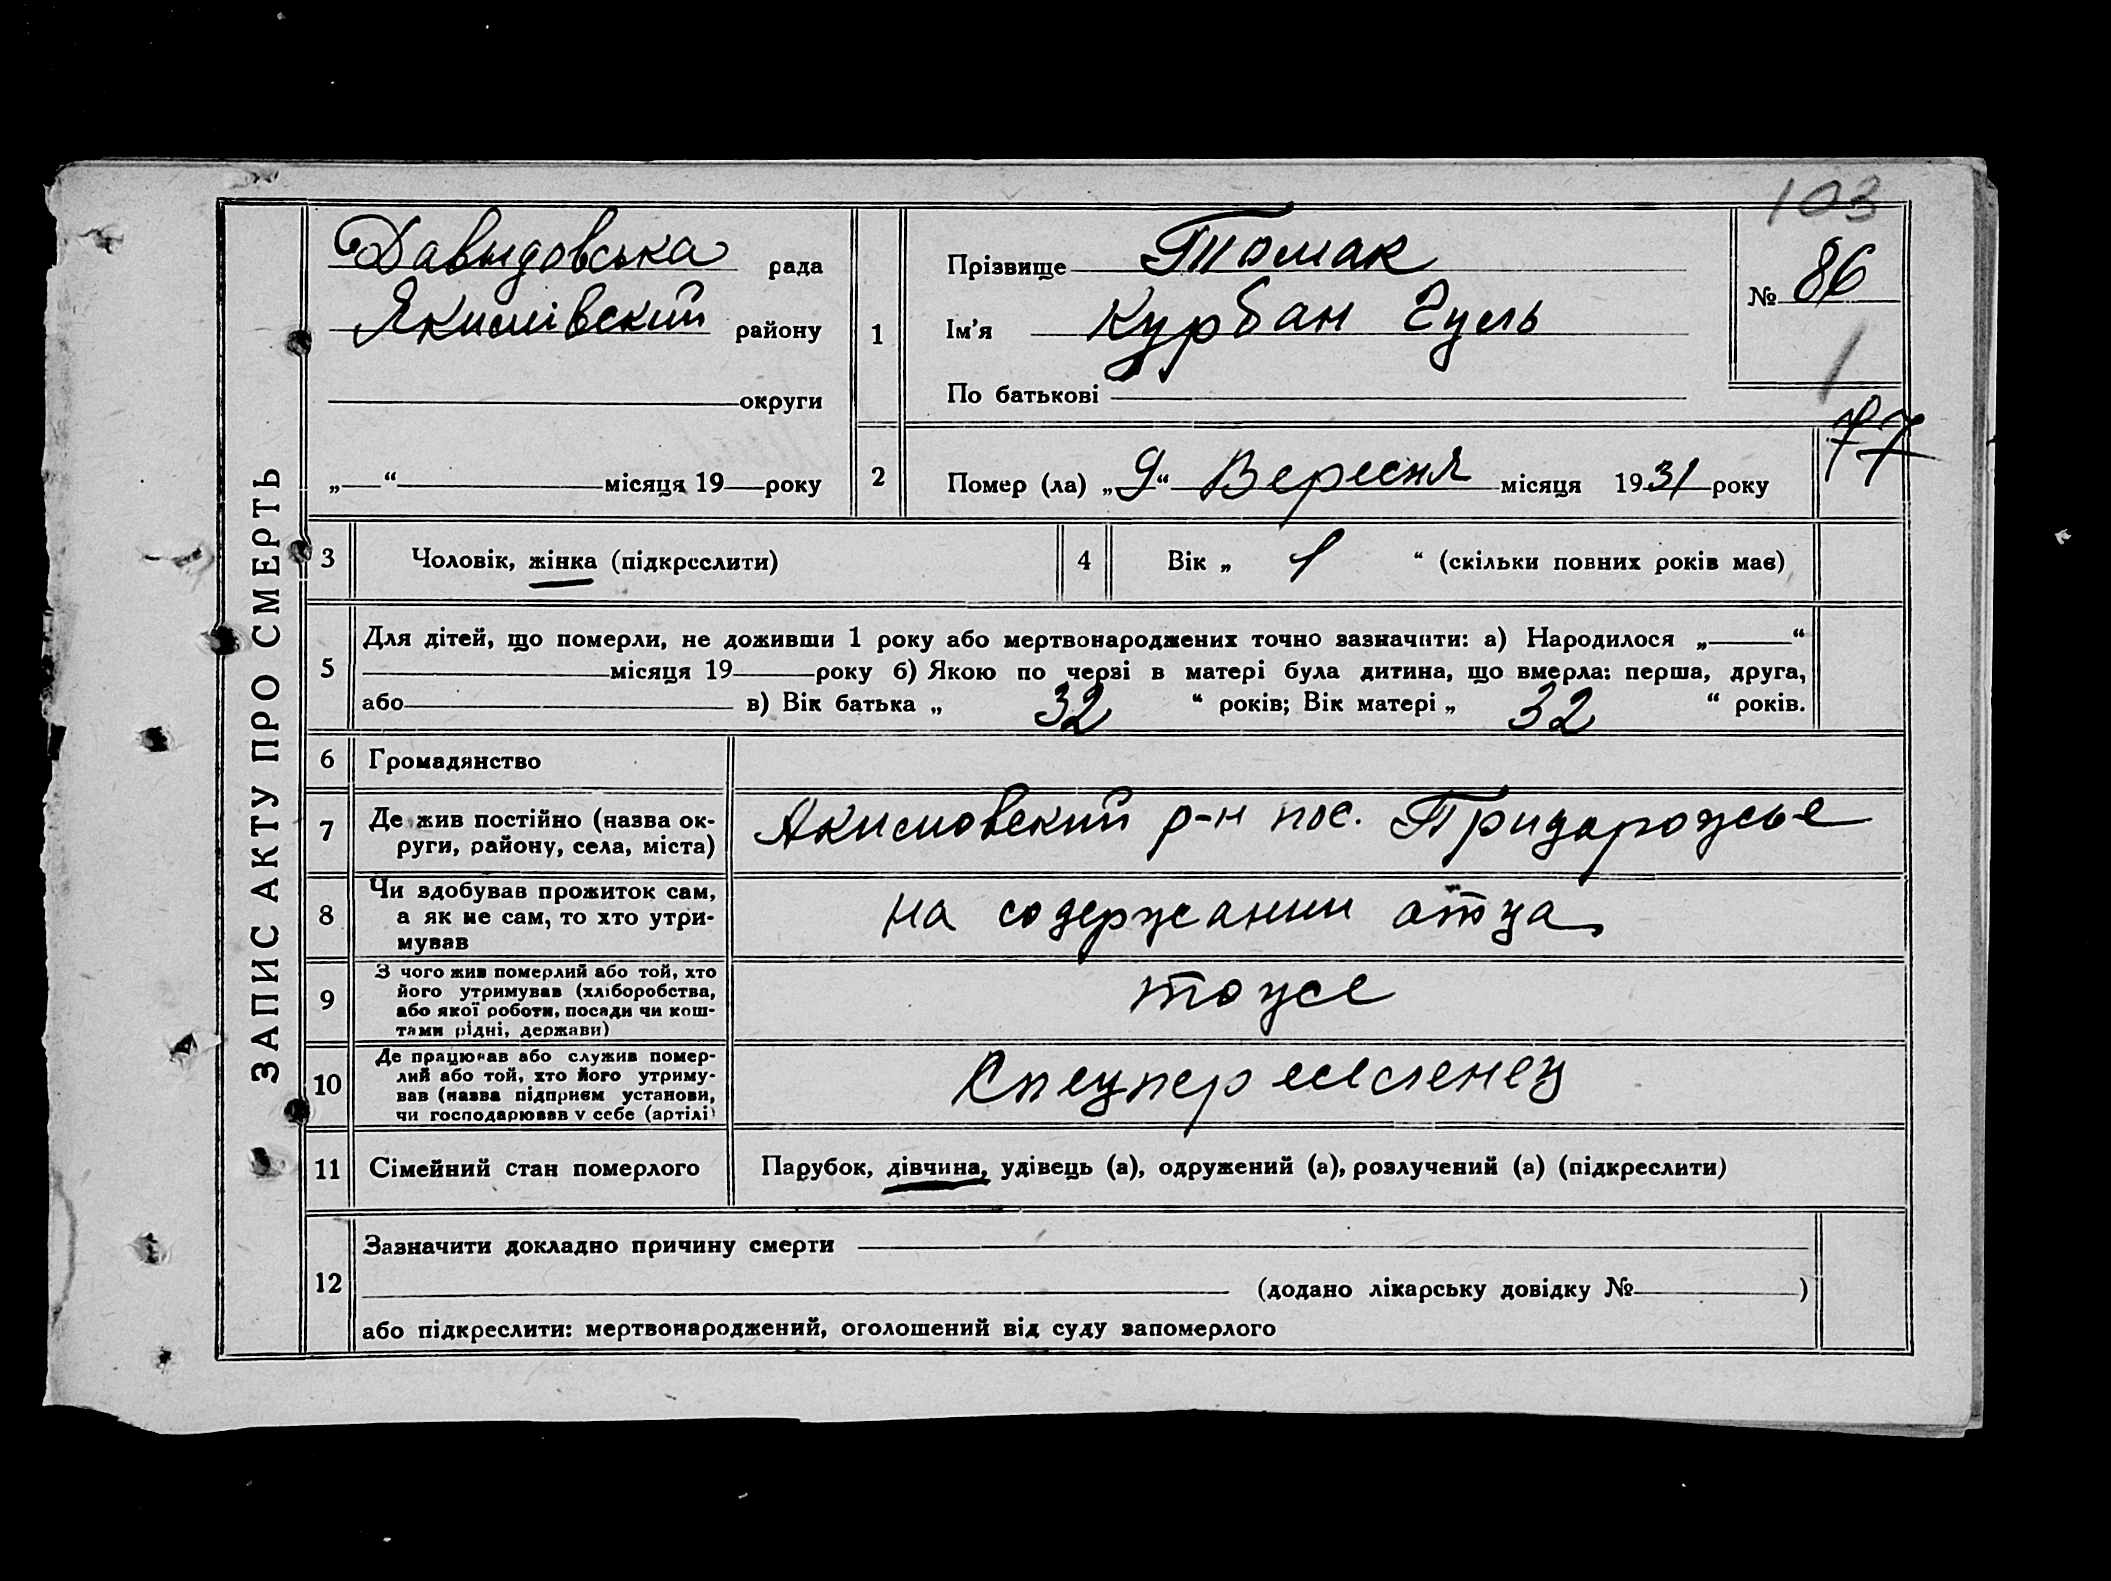 103
ЗАПИС АКТУ ПРО СМЕРТЬ
Давыдовська рада
Якимівский району
округи
„—“ місяця 19— року
1
Прізвище Томак
Ім'я Курбан Гуль
По батькові
№ 86
1
2
Помер (ла) „9“ Вересня місяця 1931 року
77
3
Чоловік, жінка (підкреслити)
4
Вік „ 1 “ (скільки повних років має)
5
Для дітей, що померли, не доживши 1 року або мертвонароджених точно зазначити: а) Народилося „—“
місяця 19— року б) Якою по черзі в матері була дитина, що вмерла: перша, друга,
або в) Вік батька „ 32 “ років; Вік матері „ 32 “ років.
6
Громадянство
7
Де жив постійно (назва ок-
руги, району, села, міста)
Акимовский р-н пос. Придорожсье
8
Чи здобував прожиток сам,
а як не сам, то хто утри-
мував
на содержании отца
9
З чого жив померлий або той, хто
його утримував (хліборобства,
або якої роботи, посади чи кош-
тами рідні, держави)
тоже
10
Де працював або служив помер-
лий або той, хто його утриму-
вав (назва підприєм установи,
чи господарював у себе (артілі)
Спецпереселенец
11
Сімейний стан померлого
Парубок, дівчина, удівець (а), одружений (а), розлучений (а) (підкреслити)
12
Зазначити докладно причину смерти
(додано лікарську довідку № )
або підкреслити: мертвонароджений, оголошений від суду запомерлого